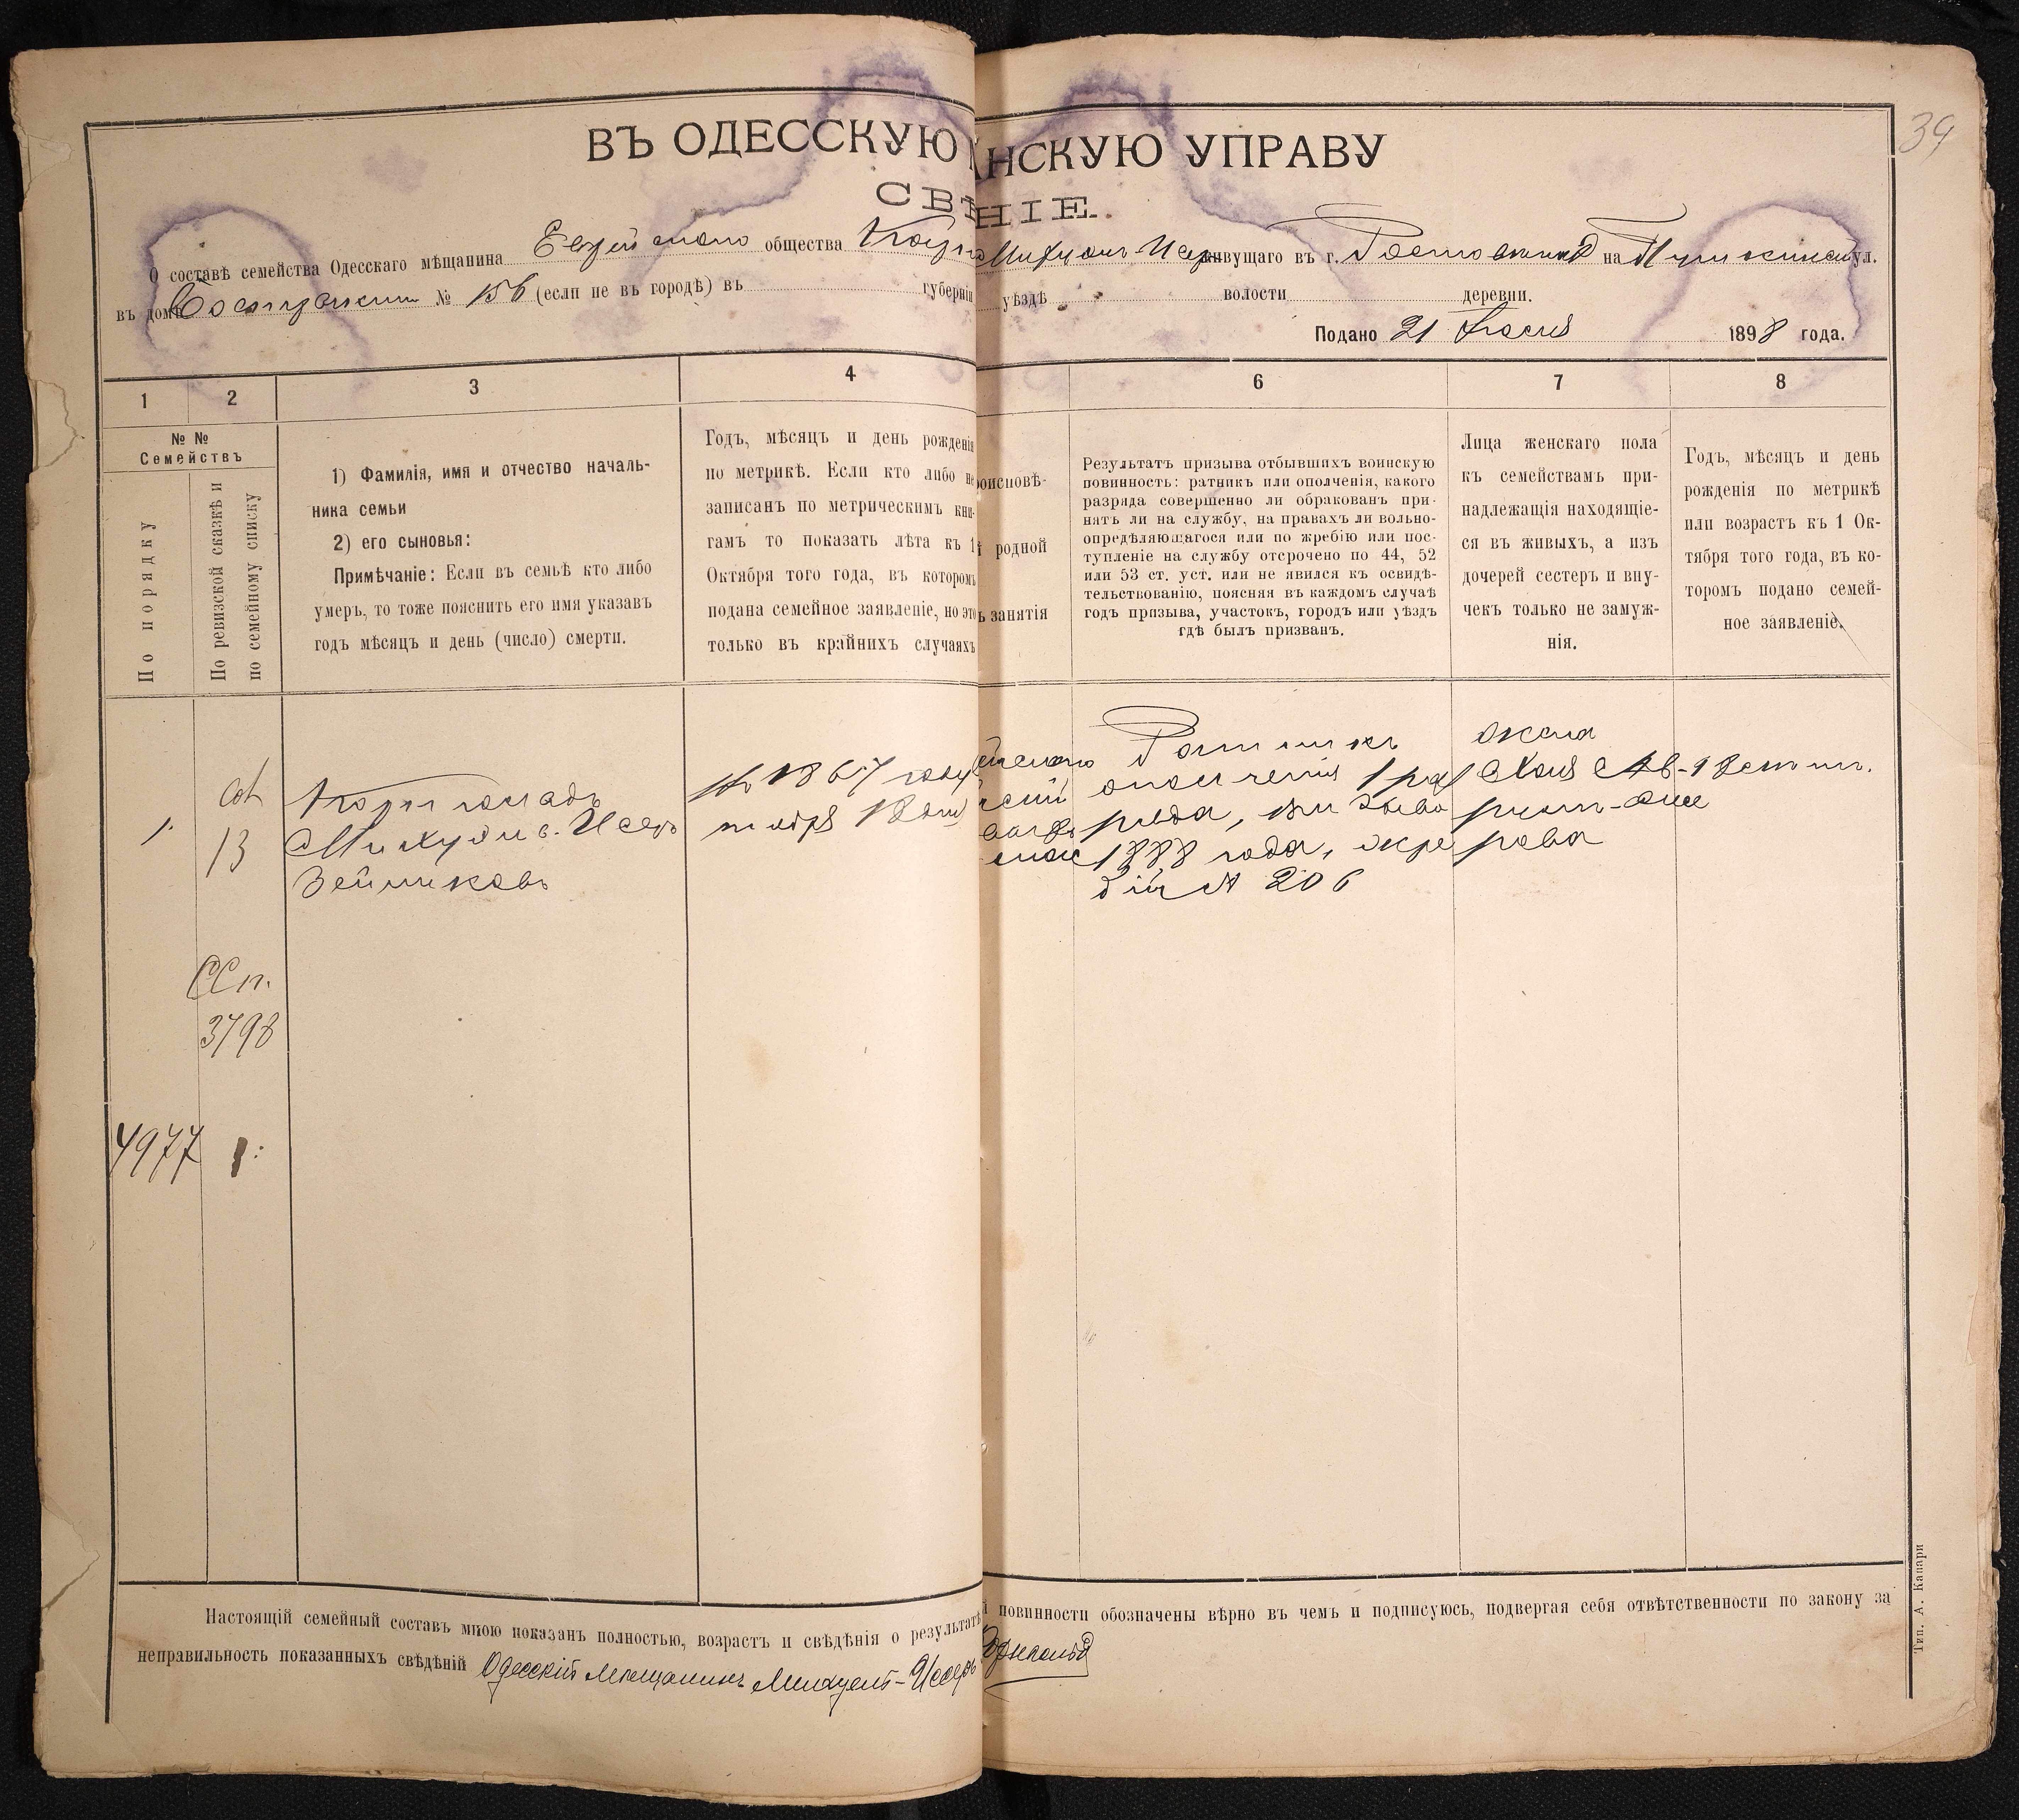 39
ВЪ ОДЕССКУЮ НСКУЮ УПРАВУ
СВ НІЕ.
О составѣ семейства Одесскаго мѣщанина Еврейскаго общества живущаго въ г. на ул.
въ домѣ № 156 (если не въ городѣ) въ губерніи уѣздѣ волости деревни.
Подано 21 1898 года.
1 2 3 4 6 7 8
№ №
Семействъ
По порядку
По ревизской сказкѣ и
по семейному списку
1) Фамилія, имя и отчество началь-
ника семьи
2) его сыновья:
Примѣчаніе: Если въ семьѣ кто либо
умеръ, то тоже пояснить его имя указавъ
годъ мѣсяцъ и день (число) смерти.
Годъ, мѣсяцъ и день рожденія
по метрикѣ. Если кто либо не
записанъ по метрическимъ кни-
гамъ то показать лѣта къ 1
Октября того года, въ которомъ
подана семейное заявленіе, но это
только въ крайнихъ случаяхъ
роисповѣ-
родной
занятія
Результатъ призыва отбывшихъ воинскую
повинность: ратникъ или ополченія, какого
разряда совершенно ли обракованъ при-
нятъ ли на службу, на правахъ ли вольно-
опредѣляющагося или по жребію или пос-
тупленіе на службу отсрочено по 44, 52
или 53 ст. уст. или не явился къ освидѣ-
тельствованію, поясняя въ каждомъ случаѣ
годъ призыва, участокъ, городъ или уѣздъ
гдѣ былъ призванъ.
Лица женскаго пола
къ семействамъ при-
надлежащія находящіе-
ся въ живыхъ, а изъ
дочерей сестеръ и вну-
чекъ только не замуж-
нія.
Годъ, мѣсяцъ и день
рожденія по метрикѣ
или возрастъ къ 1 Ок-
тября того года, въ ко-
торомъ подано семей-
ное заявленіе.
1.
13
Михуэль-Исеръ
Зейликовъ
въ 1867 году
Ратникъ
ополченія 1 раз
ряда, призыва
1888 года, жре
бій № 206
жена
Хая
3798
4977 1:
Настоящій семейный составъ мною показанъ полностью, возрастъ и свѣдѣнія о результатѣ
повинности обозначены вѣрно въ чемъ и подписуюсь, подвергая себя отвѣтственности по закону за
неправильность показанныхъ свѣдѣній Одесскій мѣщанинъ Михуель-Иссеръ
Тип. А. Кашари